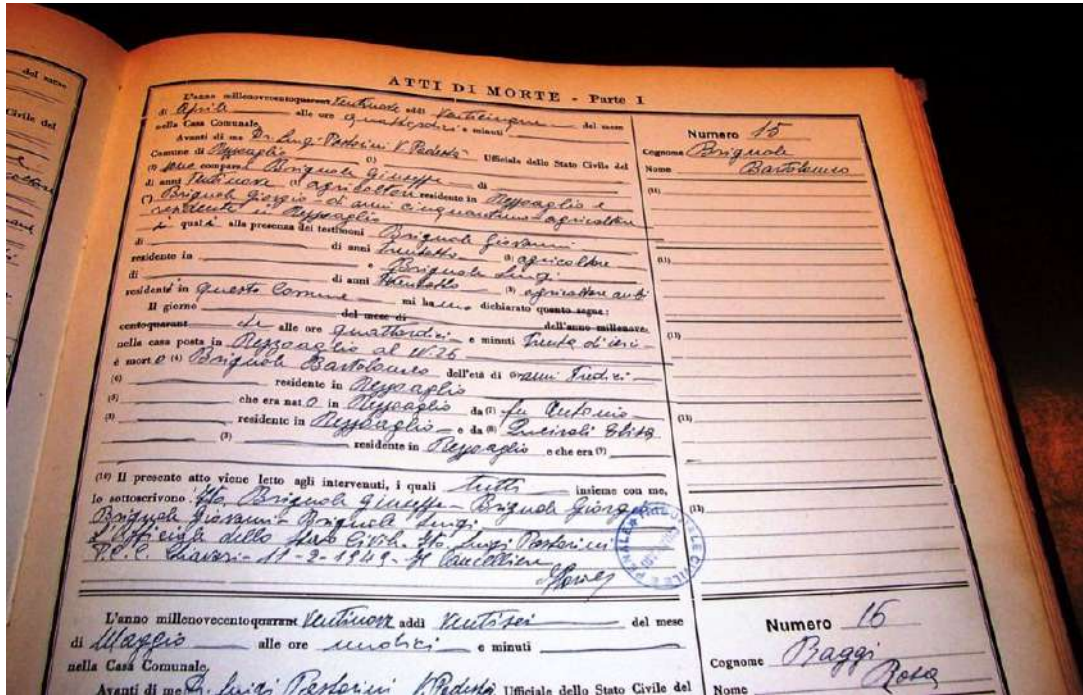 del
Civile del
ATTI DI MORTE - Parte 1
L'anno millenovecentoquarant Ventinove addì Venticinque del mese
di Aprile alle ore quattordici e minuti
nella Casa Comunale.
Avanti di me Dr. Luigi Pastorini V. Podestà Ufficiale dello Stato Civile del
Comune di Rezzoaglio (1)
(2) sono comparsi Brignole Giuseppe di
di anni Ventinove (3) agricoltore residente in Rezzoaglio e
(4) Brignole Giorgio - di anni cinquantuno - agricoltore
residente in Rezzoaglio
i quali alla presenza dei testimoni Brignole Giovanni
di di anni trentotto (3) agricoltore
residente in e Brignole Luigi
di di anni Trentotto (3) agricoltore ambi
residenti in questo Comune mi hanno dichiarato quanto segue:
Il giorno del mese di dell'anno millenove-
centoquarant che alle ore quattordici e minuti trenta di ieri
nella casa posta in Rezzoaglio al N. 26
è morto (4) Brignole Bartolomeo dell'età di anni Tredici
(6) residente in Rezzoaglio
(5) che era nato in Rezzoaglio da (7) fu Antonio
(3) residente in Rezzoaglio e da (8) Elisa
(3) residente in Rezzoaglio e che era (9)
(10) Il presente atto viene letto agli intervenuti, i quali tutti insieme con me,
lo sottoscrivono. Fto Brignole Giuseppe - Brignole Giorgio
Brignole Giovanni - Brignole Luigi
L'Ufficiale dello Stato Civile - Fto Luigi Pastorini
P.C.C. Chiavari - 11-2-1949 - Il Cancelliere
Numero 15
Cognome Brignole
Nome Bartolomeo
(11)
(11)
(13)
(13)
(13)
CIVILE E PENALE
L'anno millenovecentoquarant Ventinove addì Ventisei del mese
di Maggio alle ore undici e minuti
nella Casa Comunale.
Avanti di me Dr. Luigi Pastorini V. Podestà Ufficiale dello Stato Civile del
Numero 16
Cognome Baggi
Nome Rosa